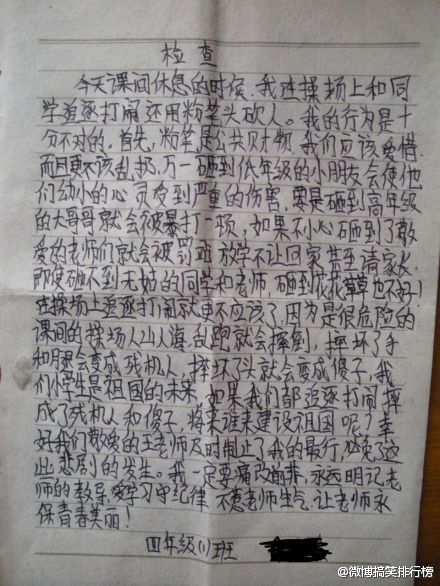 检查
今天课间休息的时候,我在操场上和同
学追逐打闹还用粉笔头砍人。我的行为是十
分不对的。首先,粉笔是公共财物,我们应该爱惜.
而且更不该乱扔,万一砸到低年级的小朋友会使他
们幼小的心灵受到严重的伤害,要是砸到高年级
的大哥哥就会被暴打一顿,如果不小心砸到了敬
爱的老师们就会被罚站 放学不让回家 甚至请家长.
即使砸不到无姑的同学和老师,砸到花花草草也不好!
在操场上追逐打闹就更不应该了,因为是很危险的
课间的操场人山人海,乱跑就会摔到,摔坏了手
和腿会变成残机人,摔坏了头就会变成傻子,我
们小学生是祖国的未来,如果我们都追逐打闹摔
成了残机人和傻子,将来谁来建设祖国呢?幸
好我们敬爱的王老师及时制止了我的最行,边免了这
此悲剧的发生。我一定要痛改前非,永远明记老
师的教导,爱学习守纪律 不惹老师生气,让老师永
保青春美丽!
四年级(1)班
@微博搞笑排行榜